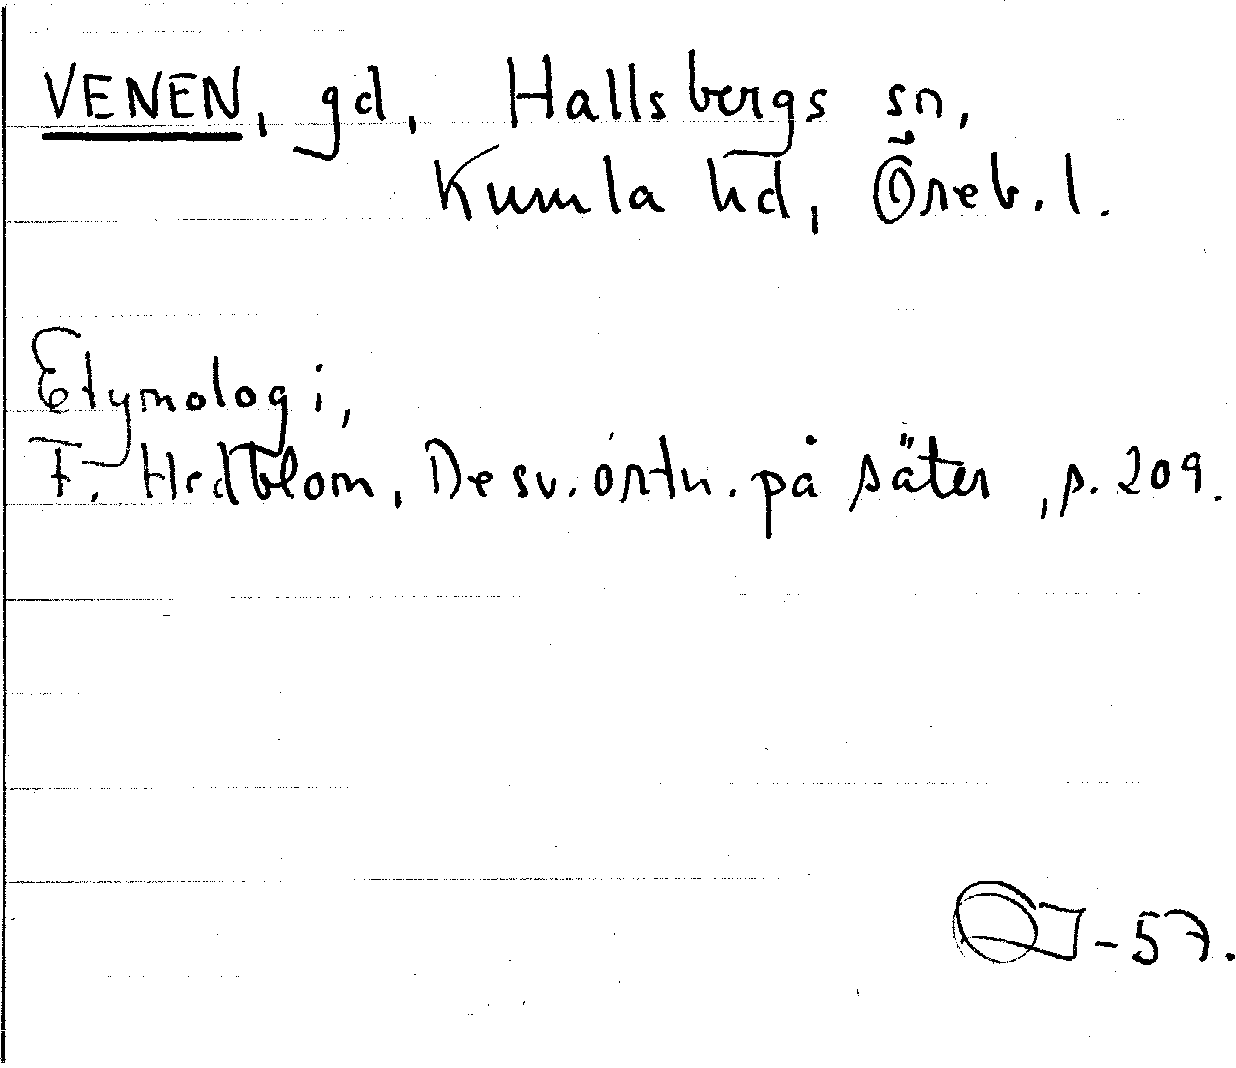 VENEN, gd, Hallsbergs sn,
Kumla hd, Öreb. l.
Etymologi,
F. Hedblom, De sv. ortn. på säter, s. 209.
-57.